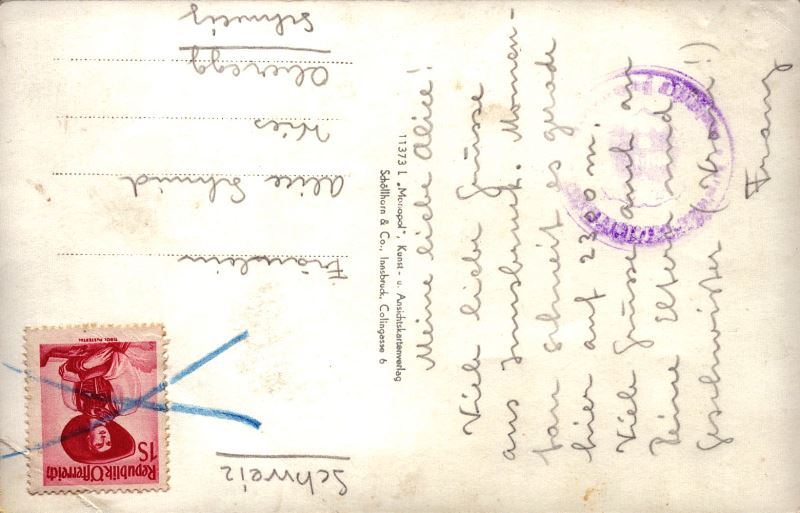 Meine liebe Alice!
Viele liebe Grüsse
aus Innsbruck. Momen-
tan schneit es gerade
hier auf 2300 m.
Viele Grüsse auch an
Deine Eltern und
Geschwister
Franz
11373 L „Monopol", Kunst- u. Ansichtskartenverlag
Schöllhorn & Co., Innsbruck, Colingasse 6
Fräulein
Alice Schmid
Oberegg
Schweiz
Schweiz
Republik Österreich
1S
TIROL PUSTERTAL